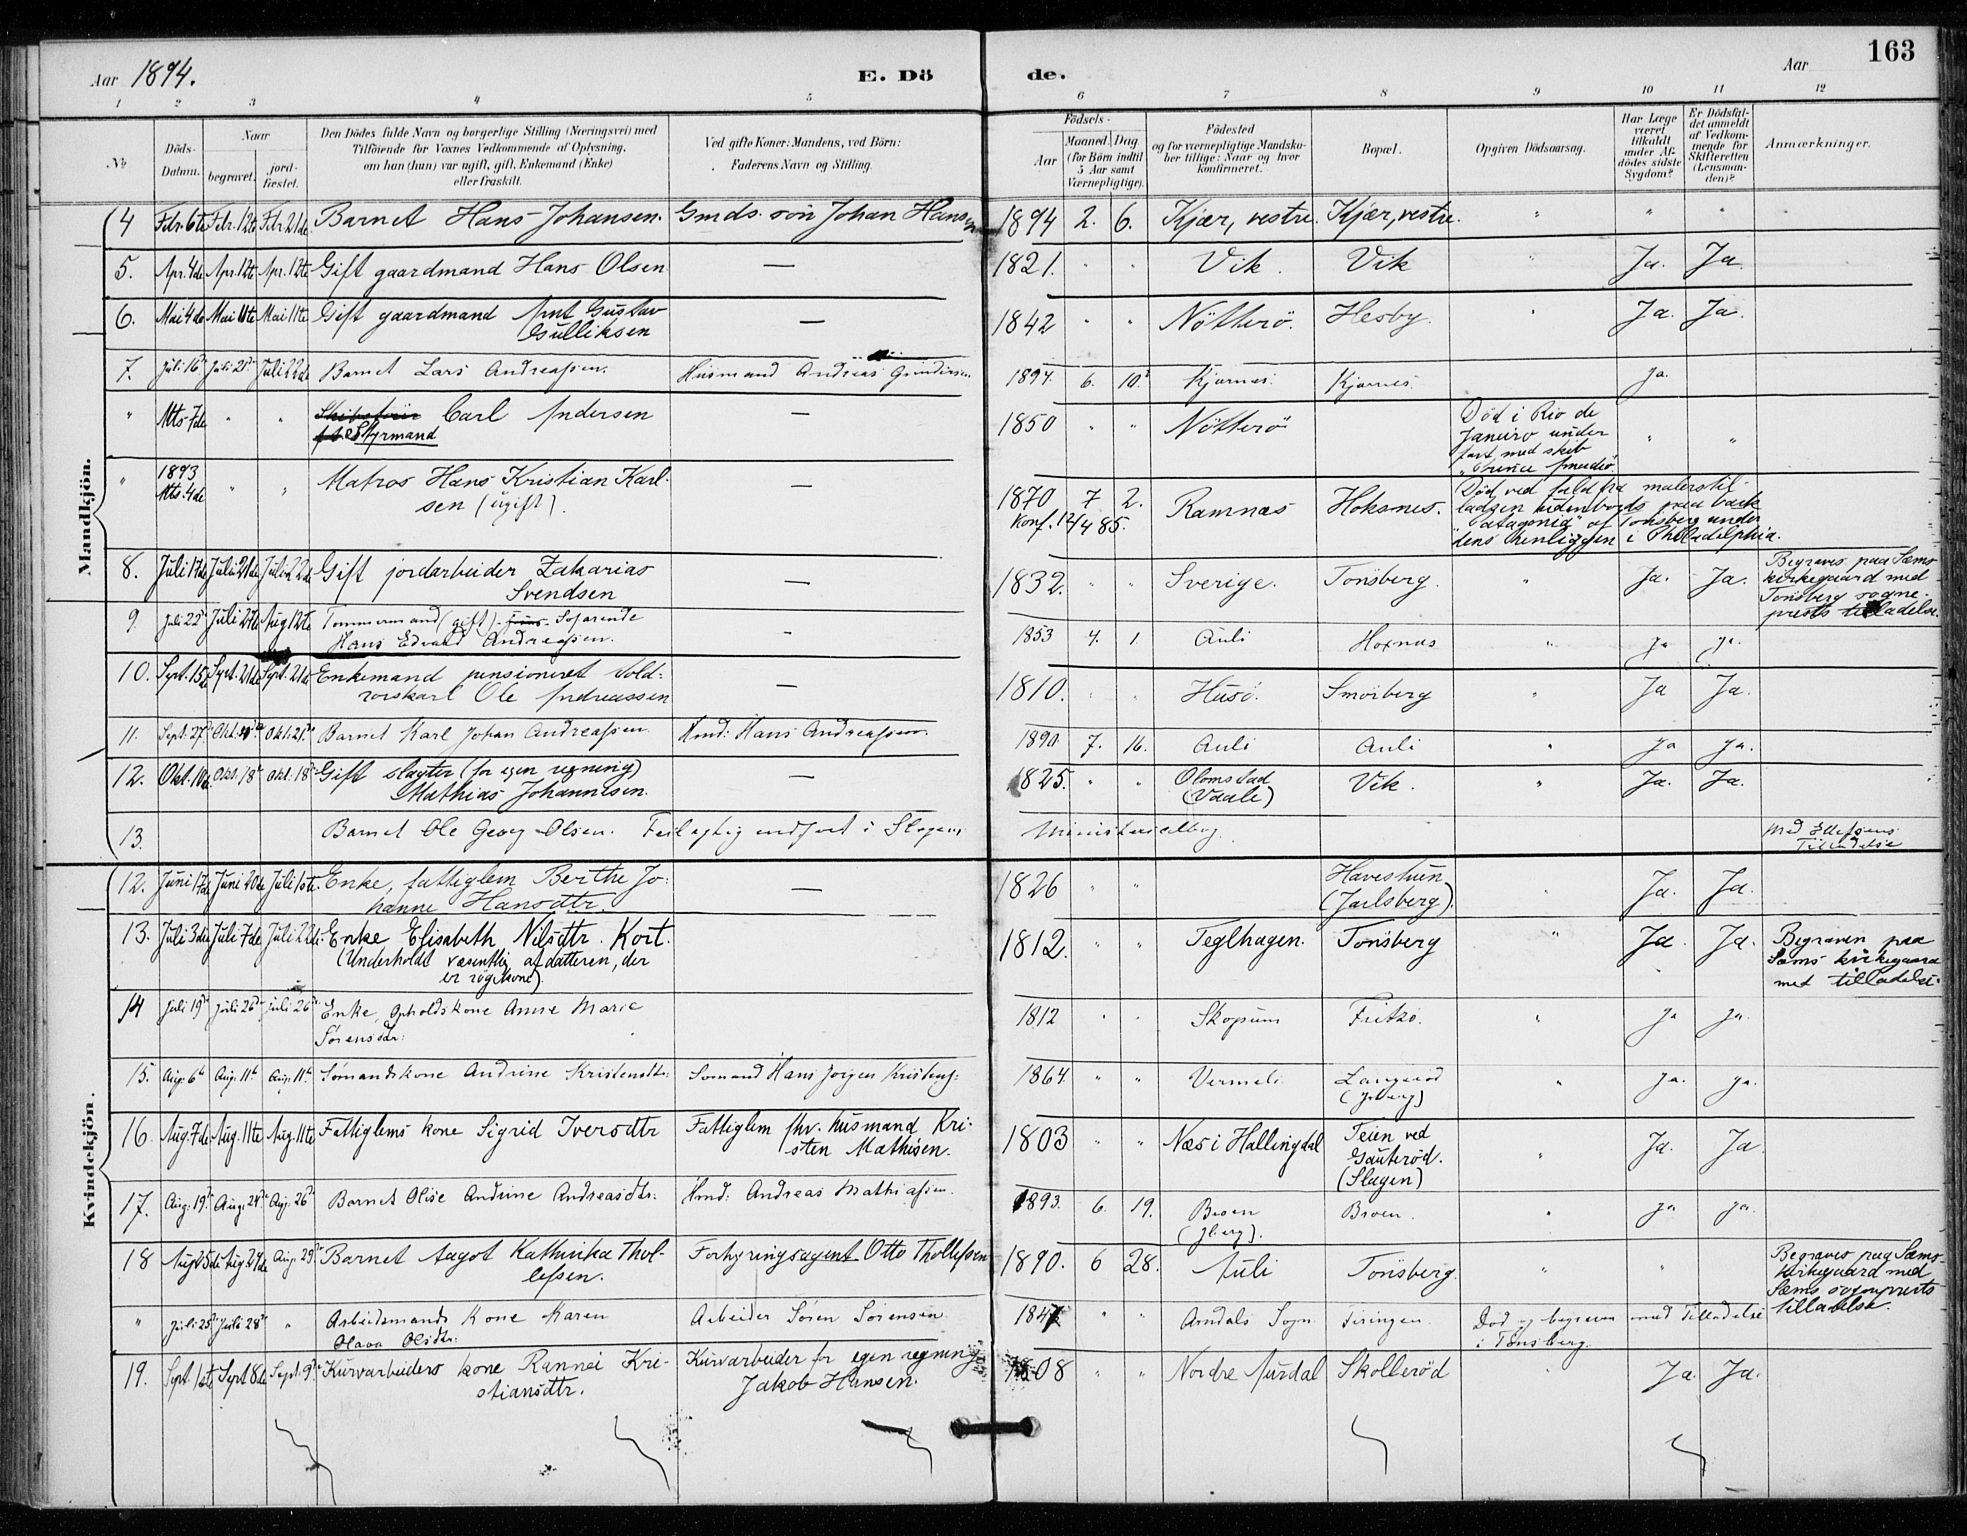 Aar 1894. E. Dö de. Aar 163
1 2 3 4 5 6 7 8 9 10 11 12
No
Döds-Datum.
Naar
begravet. jord-fæstet.
Den Dödes fulde Navn og borgerlige Stilling (Næringsvei) med
Tilföiende for Voxnes Vedkommende af Oplysning.
om han (hun) var ugift, gift, Enkemand (Enke)
eller fraskilt.
Ved gifte Koner: Mandens, ved Börn:
Faderens Navn og Stilling.
Födsels-
Aar
Maaned. Dag
(for Börn indtil
5 Aar samt
Værnepligtige).
Födested
og for værnepligtige Mandska-
ber tillige: Naar og hvor
konfirmeret.
Bopæl.
Opgiven Dödsaarsag.
Har Læge
været
tilkaldt
under Af-
dödes sidste
Sygdom?
Er Dödsfal-
det anmeldt
af Vedkom-
mende for
Skifteretten
(Lensman-
den)?
Anmærkninger.
Mandkjön.
4 Febr. 6te Febr. 12te Febr. 21de Barnet Hans Johansen. Gmds. sön Johan Hansen 1894 2. 6. Kjær, vestre. Kjær, vestre. " " "
5. Apr. 4de Apr. 12te Apr. 12te Gift gaardmand Hans Olsen — 1821. " " Vik. Vik " Ja. Ja.
6. Mai 4de Mai 11te Mai 11te Gift gaardmand Amt Gustav
Gulliksen — 1842 " " Nötterö. Hesby. " Ja. Ja.
7. Juli 16 Juli 21 Juli 22de Barnet Lars Andreassen. Husmand Andreas 1894. 6. 10. Kjærnes. Kjærnes. Ja.
" Mts 7de " " Carl Andersen
Styrmand — 1850 " " Nötterö Död i Rio de
Janeiro under
fart med skib
" "
" 1893
Mts. 4de " " Matros Hans Kristian Karl-
sen (ugift). — 1870 7 2.
Konf. 12/4 85. Ramnæs Hoksnes. Död ved fald fra malerstil-
ladsen udenbords paa bark
"Patagonia" af Tönsberg under
dens henliggen i Philadelphia.
8. Juli 17de Juli 21de Juli 22de Gift jordarbeider Zakarias
Svendsen — 1832. " " Sverige. Tönsberg. " Ja. Ja. Begraves paa Sæms
kirkegaard med
Tönsberg sogne-
prests tilladelse.
9. Juli 22 Juli 27de Aug 12te Tömmermand (gift) Sofarende
Hans Edvard Andreassen. — 1853 4. 1. Auli Hoxnæs " Ja Ja.
10. Sept. 15de Sept. 21de Sept. 21de Enkemand pensioneret Vold-
Ole Andreassen — 1810. " " Husö. Smörberg " Ja Ja.
11. Sept. 27 Okt. Okt. 21 Barnet Karl Johan Andreassen. Hmd: Hans Andreassen. 1890 7. 16. Auli Auli " Ja Ja.
12. Okt. 10de Okt. 18 Okt. 18 Gift slagter (for egen regning)
Mathias Johannesen. — 1825. " " Olomstad
(Vaale) Vik. " Ja. Ja.
13. Barnet Ole Georg Olsen. Feilagtig indfört i Slagens Ministerialbog. Med
Tilladelse
Kvindekjön.
12. Juni 17de Juni 20de Juli 1ste Enke, fattiglem Berthe Jo-
hanne Hansdtr. — 1826 " " Havestuen
(Jarlsberg). " Ja. Ja.
13. Juli 3die Juli 7de Juli 22de Enke Elisabeth Nilsdtr. Kort.
(Underholdt væsentlig af datteren, der
er rögtkone). 1812. " " Teglhagen. Tönsberg " Ja. Ja. Begraven paa
Sæms kirkegaard
med tilladelse.
14 Juli 19 Juli 26 Juli 26 Enke, Opholdskone Anne Marie
Sörensdtr: 1812 " " Skopum Fritzö. " Ja Ja.
15. Aug. 6 Aug. 11 Aug. 11. Sömandskone Andrine Kristensdtr: Sömand Hans Jörgen Kristens: 1864. " " Vermeli Langeröd " Ja. Ja.
16. Aug. 7de Aug. 11te Aug. 11te Fattiglems kone Sigrid Iversdtr Fattiglem fhv. husmand Kri-
sten Mathisen. 1803 " " Næs i Hallingdal Teien ved
Gauteröd.
(Slagen) " Ja. Ja
17. Aug. 19. Aug. 24 Aug. 26 Barnet Olise Andrine Andreasdtr: Hmd: Andreas Mathiassen. 1893. 6. 19. Broen Broen. " Ja Ja.
18 Aug 25de Aug 29de Aug. 29 Barnet Aagot Kathinka Thol-
lefsen. Forhyringsagent Otto Thollefsen 1890. 6 28. Auli Tönsberg. " " Begraves paa Sæms
kirkegaard med
Sæms sogneprests
tilladelse.
" Juli 25 Juli 28 " Arbeidsmands Kone Karen
Olava Olsdtr: Arbeider Sören Sörensen 184 " " Arndals Sogn Död og begraven med Tilladelse
i Tönsberg.
19. Sept. 1ste Sept 8de Sept. 9 Kurvarbeiders kone Rannei Kri-
stiansdtr. Kurvarbeider for egen regning
Jakob Hansen. 1808 " " Nordre Aurdal Skolleröd " Ja. Ja.